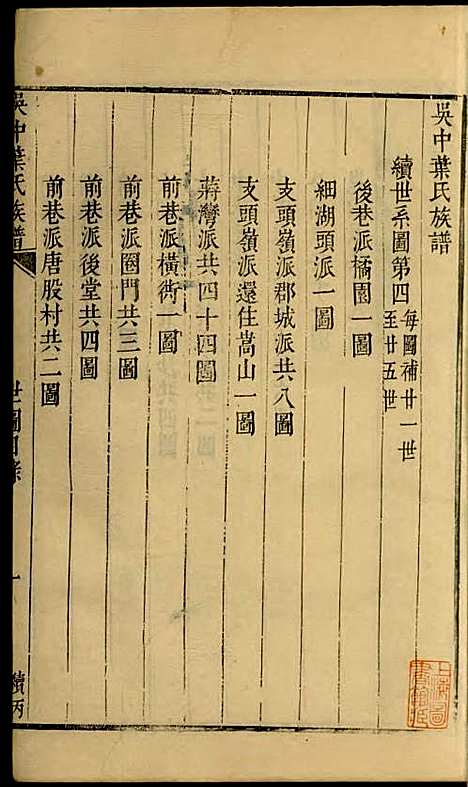 吳中葉氏族譜
續世系圖第四 每圖補廿一世至廿五世
後巷派橘園一圖
細湖頭派一圖
支頭嶺派郡城派共八圖
支頭嶺派還住嵩山一圖
蔣灣派共四十四圖
前巷派橫街一圖
前巷派圈門共三圖
前巷派後堂共四圖
前巷派唐股村共二圖
吳中葉氏族譜
世圖目錄
一
續丙
上海圖書館藏